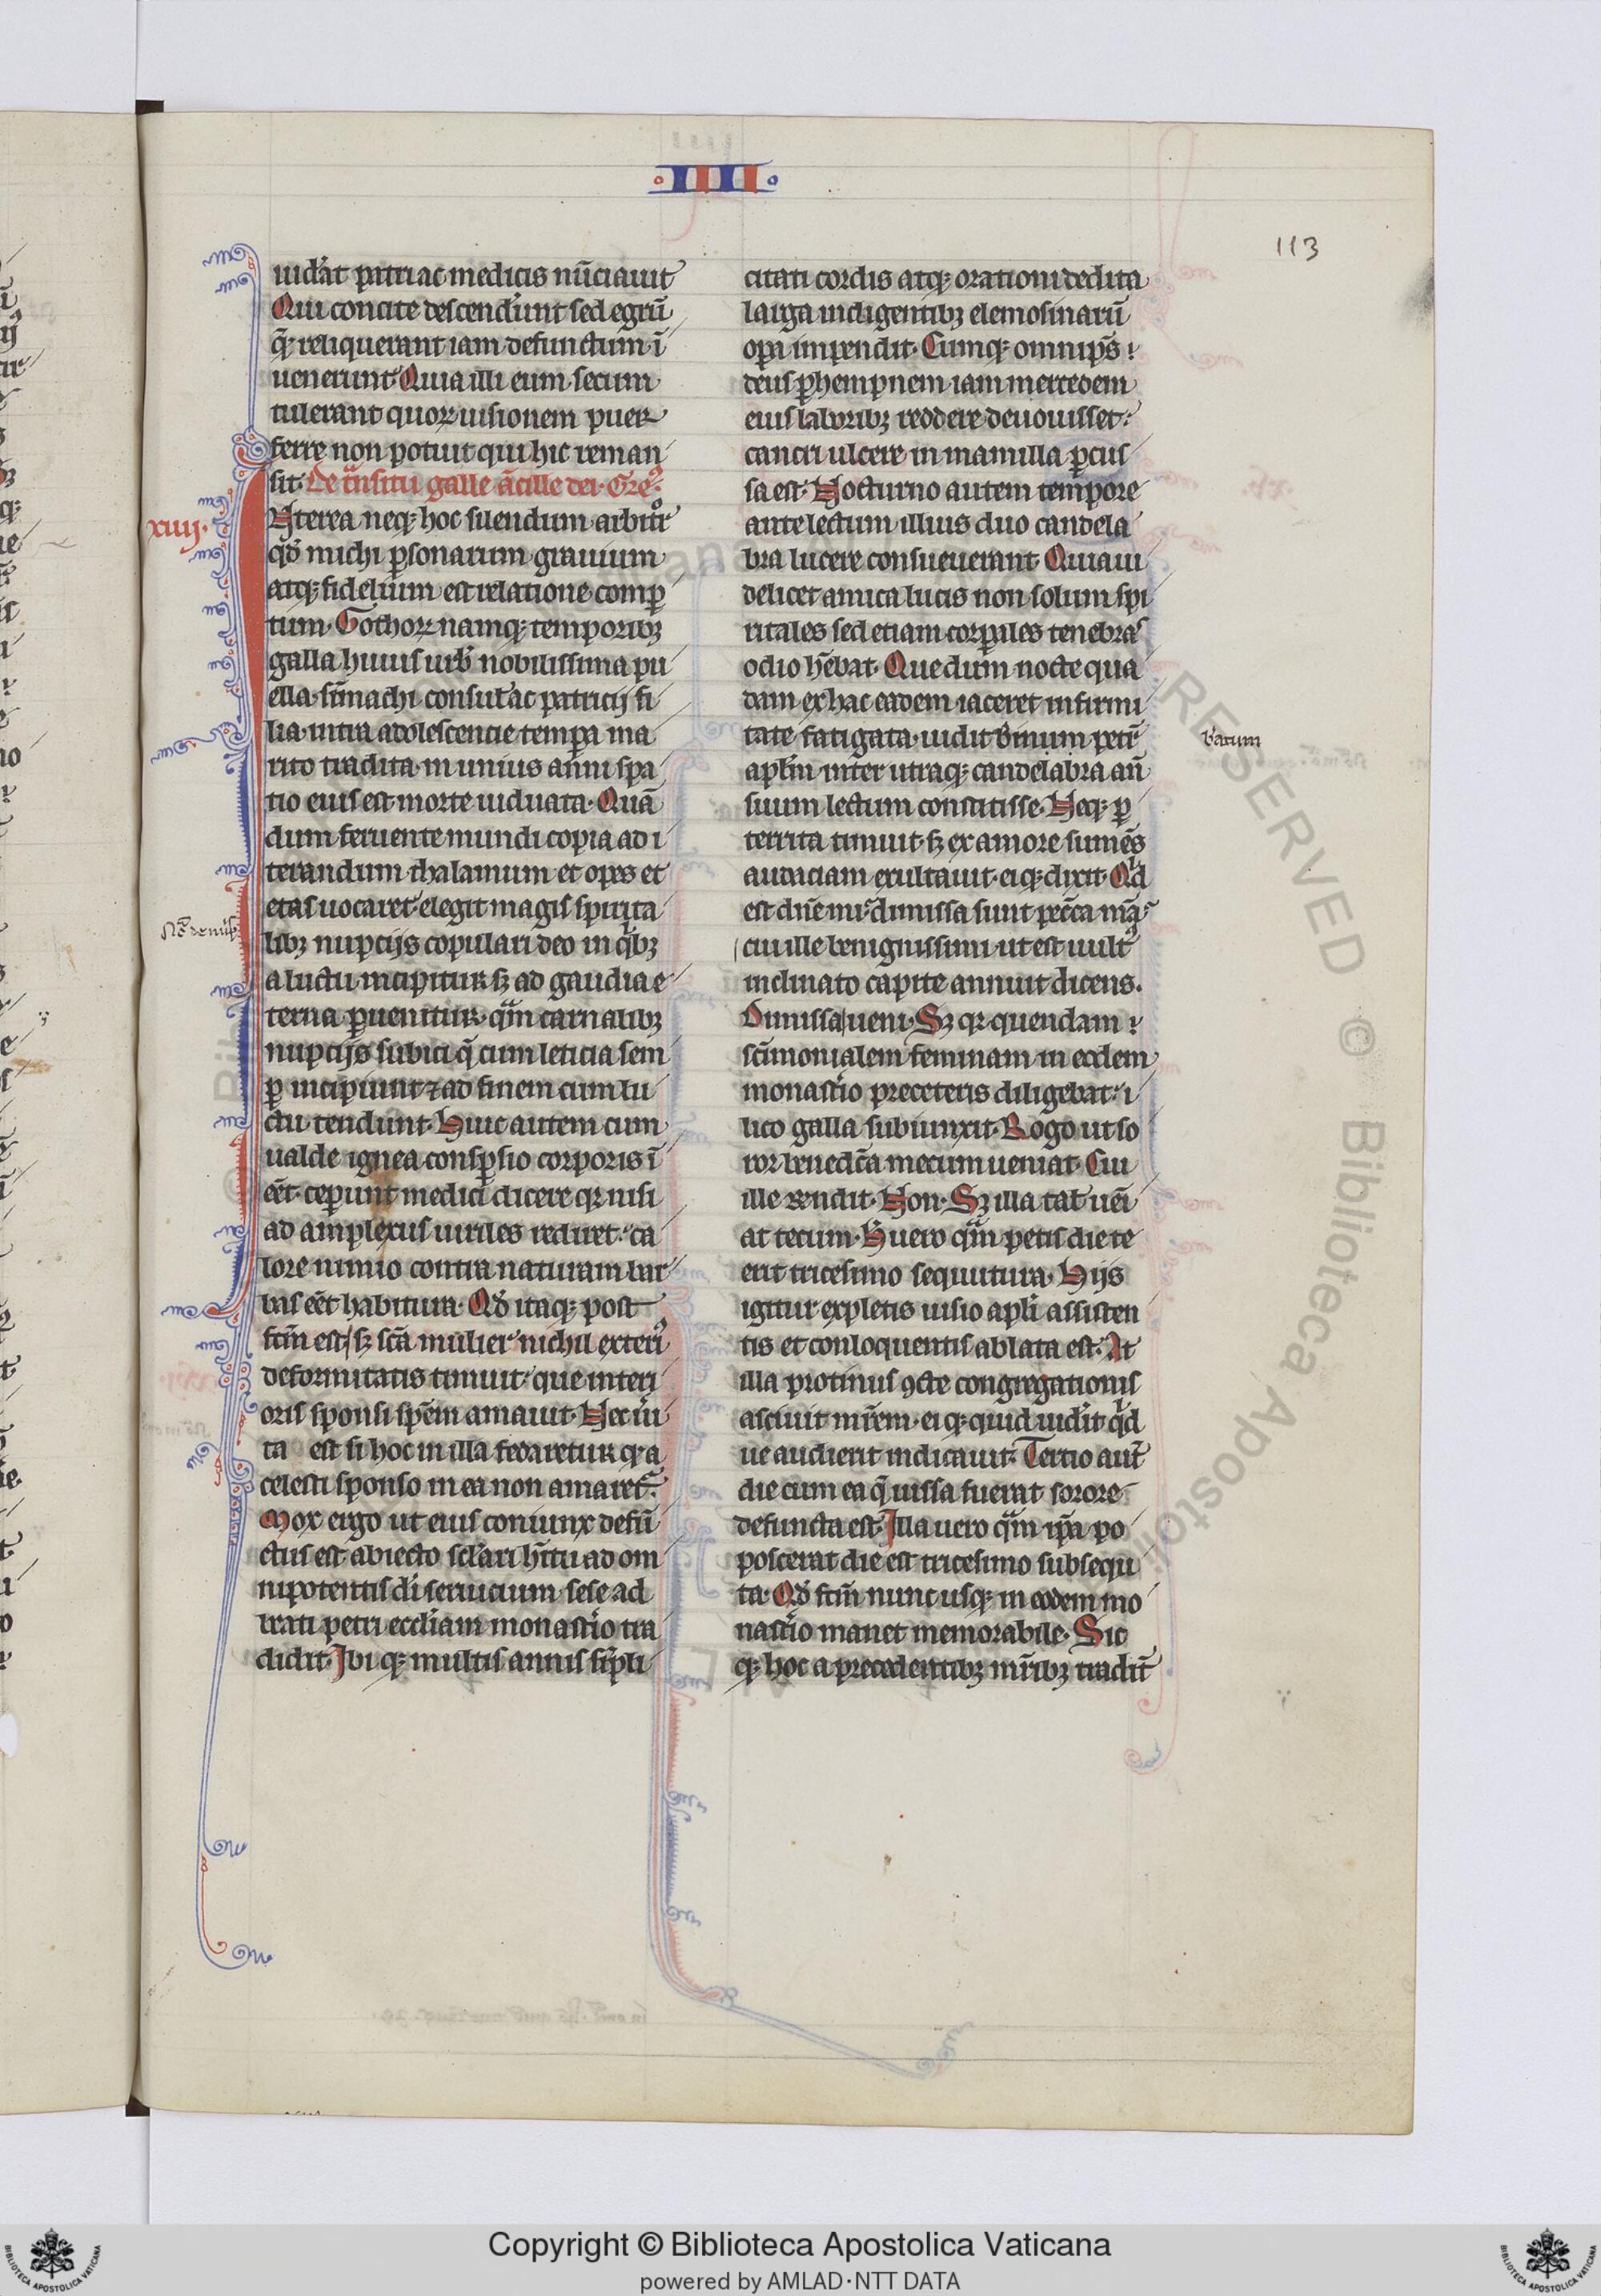 IIII
113
uid̾at patri ac medicis nūciauit
Qui concite descend̾unt sed egrū
q̄ꝫ reliquerant iam defunctum ī
uenerunt Quia illi eum secum
tulerant quoꝝ uisionem puer
ferre non potuit qui hic reman
sit. De t̾nsitu galle ācille dei. Gre.
xiiij.
Nterea neqꝫ hoc silendum arbitror
qd̾ michi ꝑsonarum grauium
atqꝫ fidelium est relatione comꝑ
tum. Gothoꝝ namqꝫ temporibꝫ
galla huius urb̾ nobilissima pu
ella. simachi consul̾ ac patricij fi
lia. intra adolescentie tempa ma
rito tradita. in unius anni spa
tio eius est morte uiduata. Quā
dum feruente mundi copia ad i
terandum thalamum et opes et
etas uocaret. elegit magis spirita
libꝫ nuptijs copulari deo in qibꝫ
a luctu incipitur sꝫ ad gaudia e
terna ꝑuenitur. qm̄ carnalibꝫ
nuptijs subici q̄ cum leticia sem
ꝑ incipiunt ⁊ ad finem cum lu
ctu tendunt. Huic autem cum
ualde ignea consꝑsio corporis ī
eēt. ceperunt medici dicere qꝛ nisi
ad amplexus uiriles rediret. ca
lore nimio contra naturam bar
bas eēt habitura. Qd̾ itaqꝫ post
fc̄m est sꝫ sc̄a mulier nichil exteri
deformitatis timuit. que interi
oris sponsi spēm amauit. Nec ui
ta est si hoc in illa fedaretur qd̾ a
celesti sponso in ea non amaret.
Mox ergo ut eius coniunx defū
ctus est abiecto sc̄lari hītu ad om
nipotentis dī seruicium sese ad
beati petri eccl̄iam monast̾io tra
didit. Ibi qꝫ multis annis simpli
citati cordis atqꝫ orationi dedita
larga indigentibꝫ elemosinarū
opa impendit. Cumqꝫ omnip̄s
deus ꝑhempnem iam mercedem
eius laboribꝫ reddere deuouisset.
cancri ulcere in mamilla ꝑcus
sa est. Nocturno autem tempore
ante lectum illius duo candela
bra lucere consueuerant. Quia ui
delicet amica lucis non solum spi
ritales sed etiam corꝑales tenebras
odio hēbat. Que dum nocte qua
dam ex hac eadem iaceret infirmi
tate fatigata. uidit b̾inum petr̄
b̾atum
apl̄m inter utraqꝫ candelabra an̄
suum lectum constitisse. Necqꝫ ꝑ
territa timuit. sꝫ ex amore sumēs
audaciam exultauit. eiqꝫ dixit. Qid
est dn̄e mi. dimissa sunt pecc̄a m̄a.
cui ille benignissimi. ut est uult̾
inclinato capite annuit dicens.
Dimissa ueni. Sꝫ qꝛ quendam
sc̄imonialem feminam in eodem
monast̾io pre ceteris diligebat. i
lico galla subiunxit. Rogo ut so
ror benedc̄a mecum ueniat. Cui
ille rn̄dit. Non. Sꝫ illa tal̾ ueī
at tecum. Huero qm̄ petis die te
erit tricesimo sequutura. Hijs
igitur expletis uisio apl̄i assisten
tis et conloquentis ablata est. At
illa protinus ꝯcte congregationis
asciuit m̄rem. eiqꝫ quid uid̾it qid
ue audierit indicauit. Tertio aut̄
die cum ea q̄ iussa fuerat sorore
defuncta est. Illa uero qm̄ ip̄a po
poscerat die est tricesimo subsequ
ta. Qd̾ fc̄m nunc usqꝫ in eodem mo
nast̾io manet memorabile. Sic
qꝫ hoc a precedentibꝫ m̄ribꝫ tradit̾
Copyright © Biblioteca Apostolica Vaticana
powered by AMLAD·NTT DATA